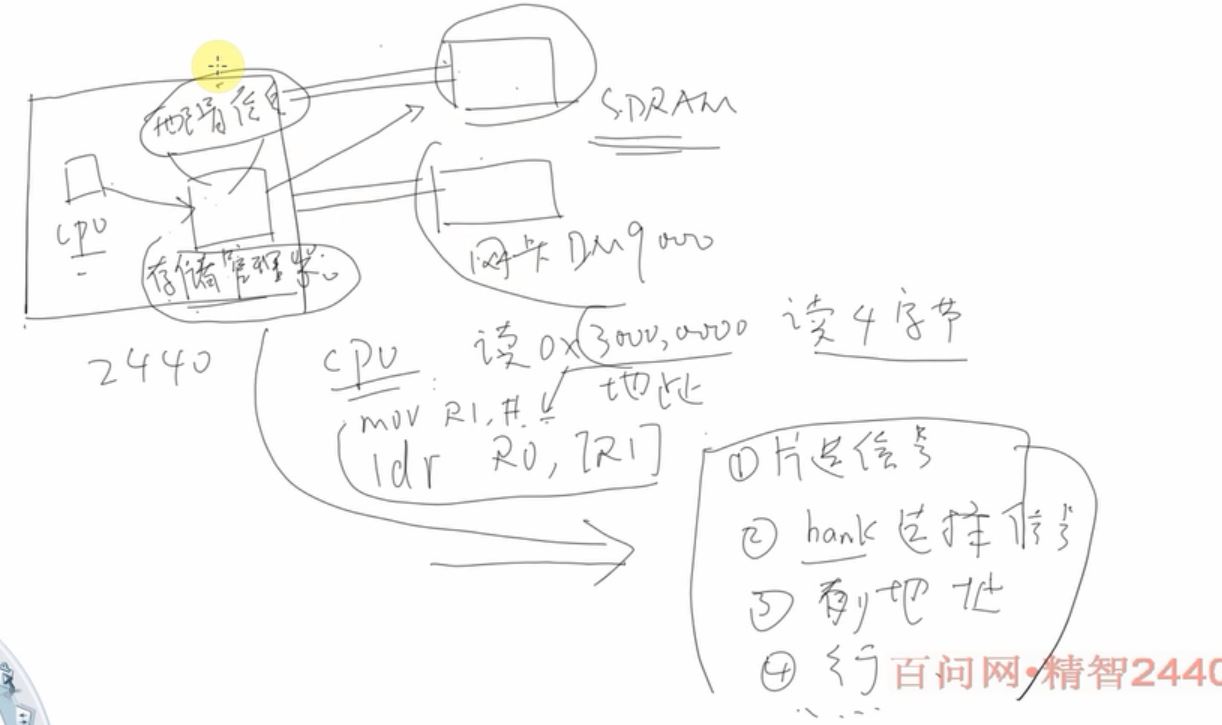 配置信息
SDRAM
cpu
存储管理器
网卡DM9000
2440
cpu 读0x3000,0000 读4字节
地址
mov R1,#
ldr R0,[R1]
①片选信号
② bank选择信号
③ 列地址
④ 行
百问网•精智2440